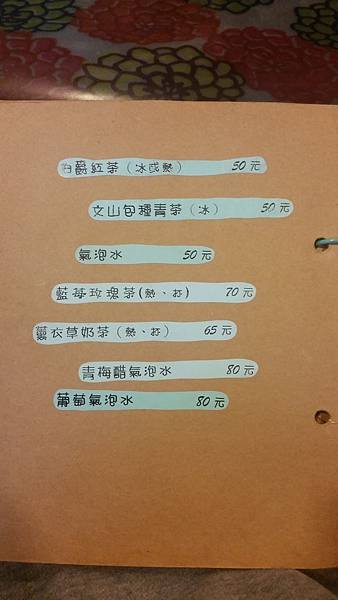 伯爵紅茶（冰或熱） 50元
文山包種青茶（冰） 50元
氣泡水 50元
藍莓玫瑰茶(熱、冰) 70元
薰衣草奶茶（熱、冰） 65元
青梅醋氣泡水 80元
葡萄氣泡水 80元